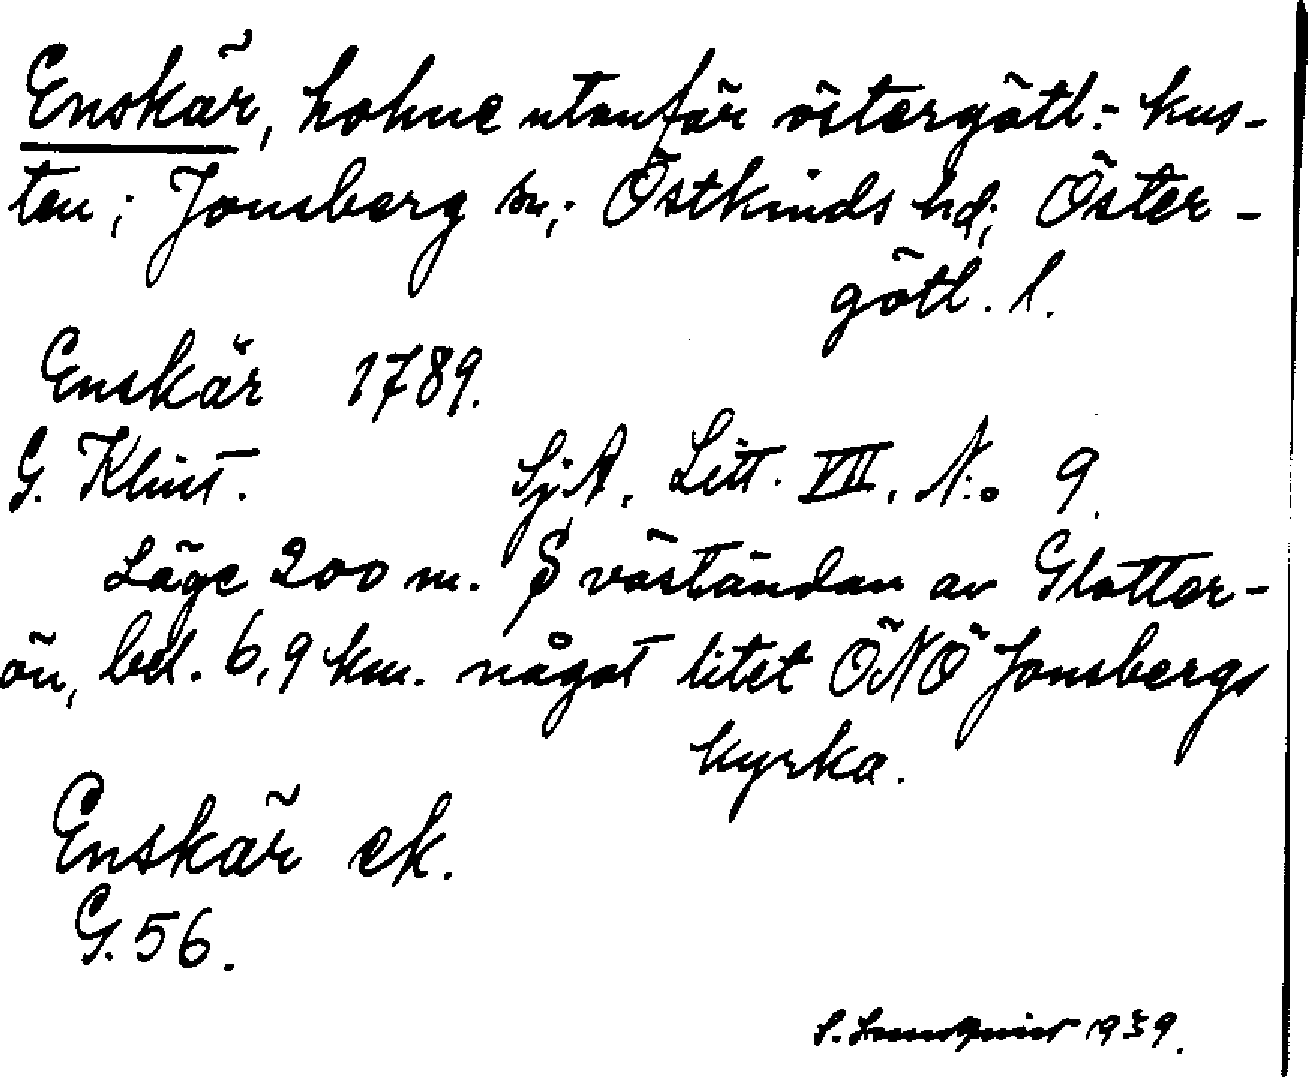 Enskär, holme utanför östergötl.- kus-
ten; Jonsberg sn; Östkinds hd; Öster-
götl. l.
Enskär 1789.
G. Klint. SjA. Litt. VII. N:o 9.
Läge 200 m. S väständan av Glotter-
ön, bel. 6,9 km. något litet ÖNÖ Jonsbergs
kyrka.
Enskär ek.
G. 56.
S. 1939.